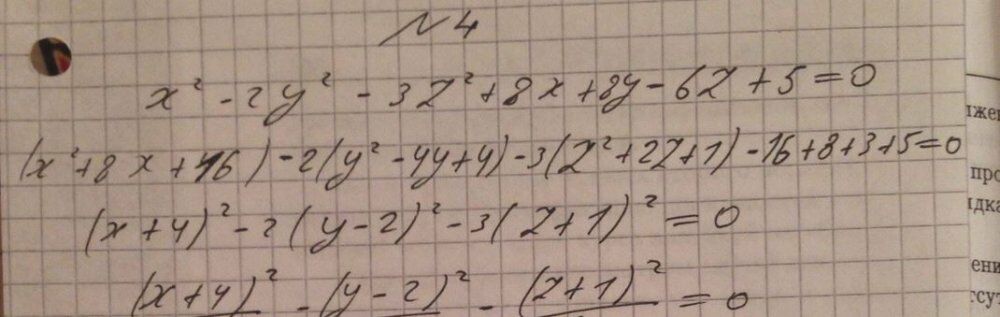 № 4
x² - 2y² - 3z² + 8x + 8y - 6z + 5 = 0
(x² + 8x + 16) - 2(y² - 4y + 4) - 3(z² + 2z + 1) - 16 + 8 + 3 + 5 = 0
(x + 4)² - 2(y - 2)² - 3(z + 1)² = 0
(x + 4)² - (y - 2)² - (z + 1)² = 0